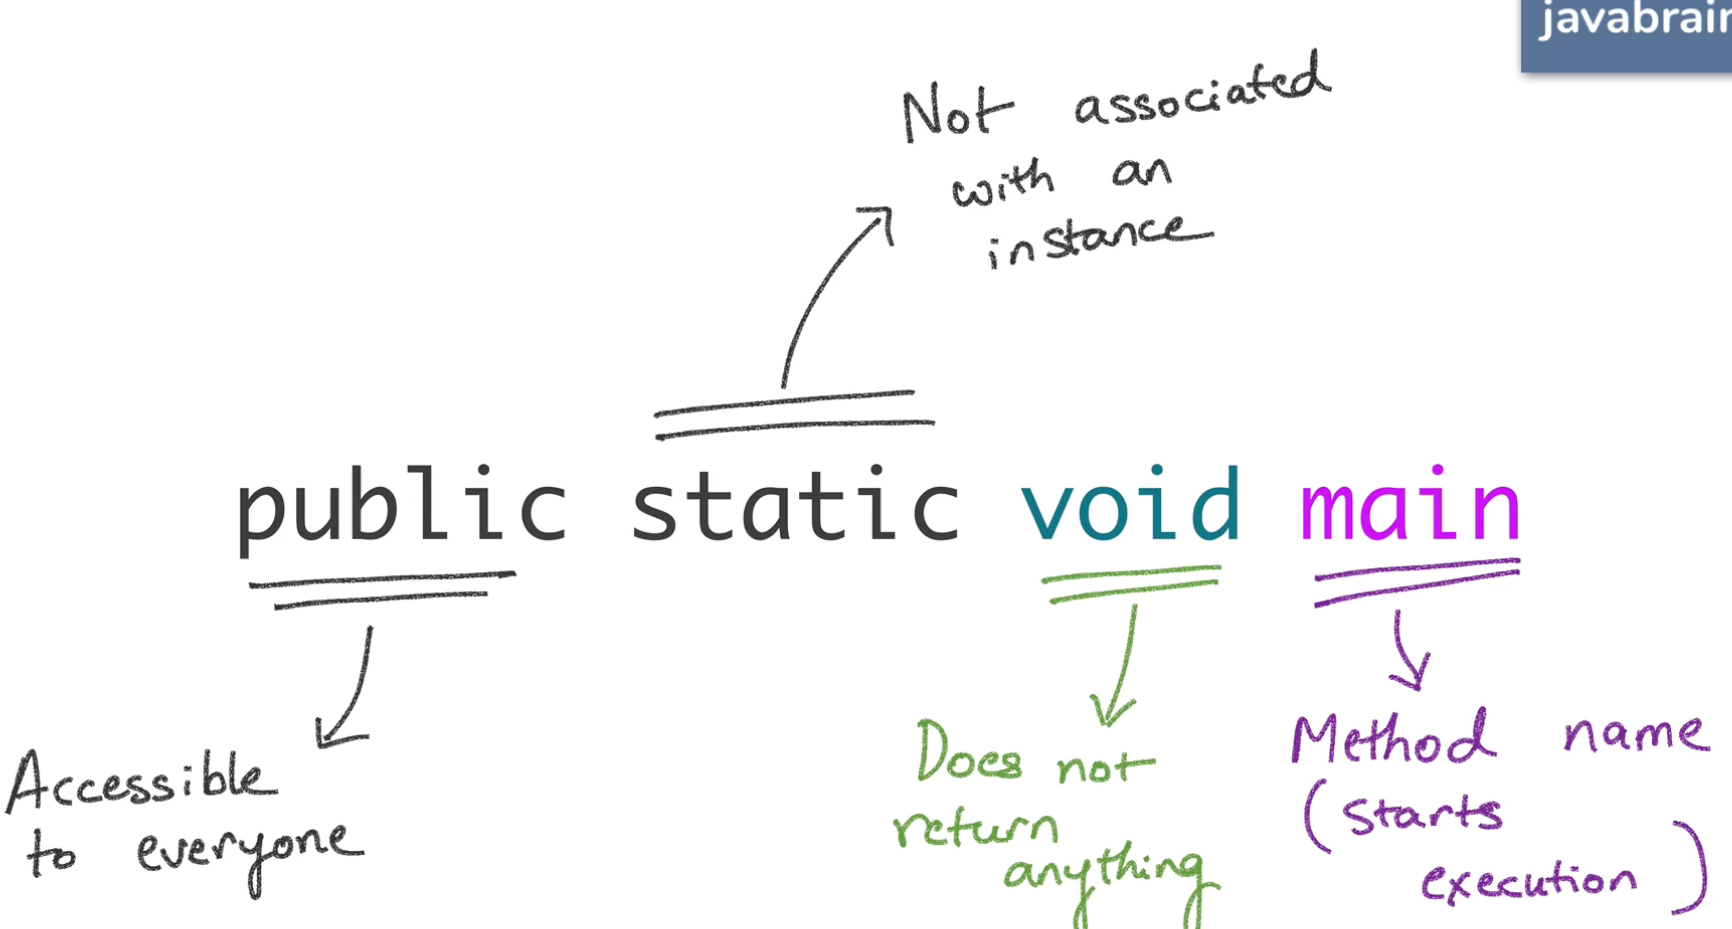 javabrain
Not associated
with an
instance
public static void main
Accessible
to everyone
Does not
return
anything
Method name
(starts
execution)